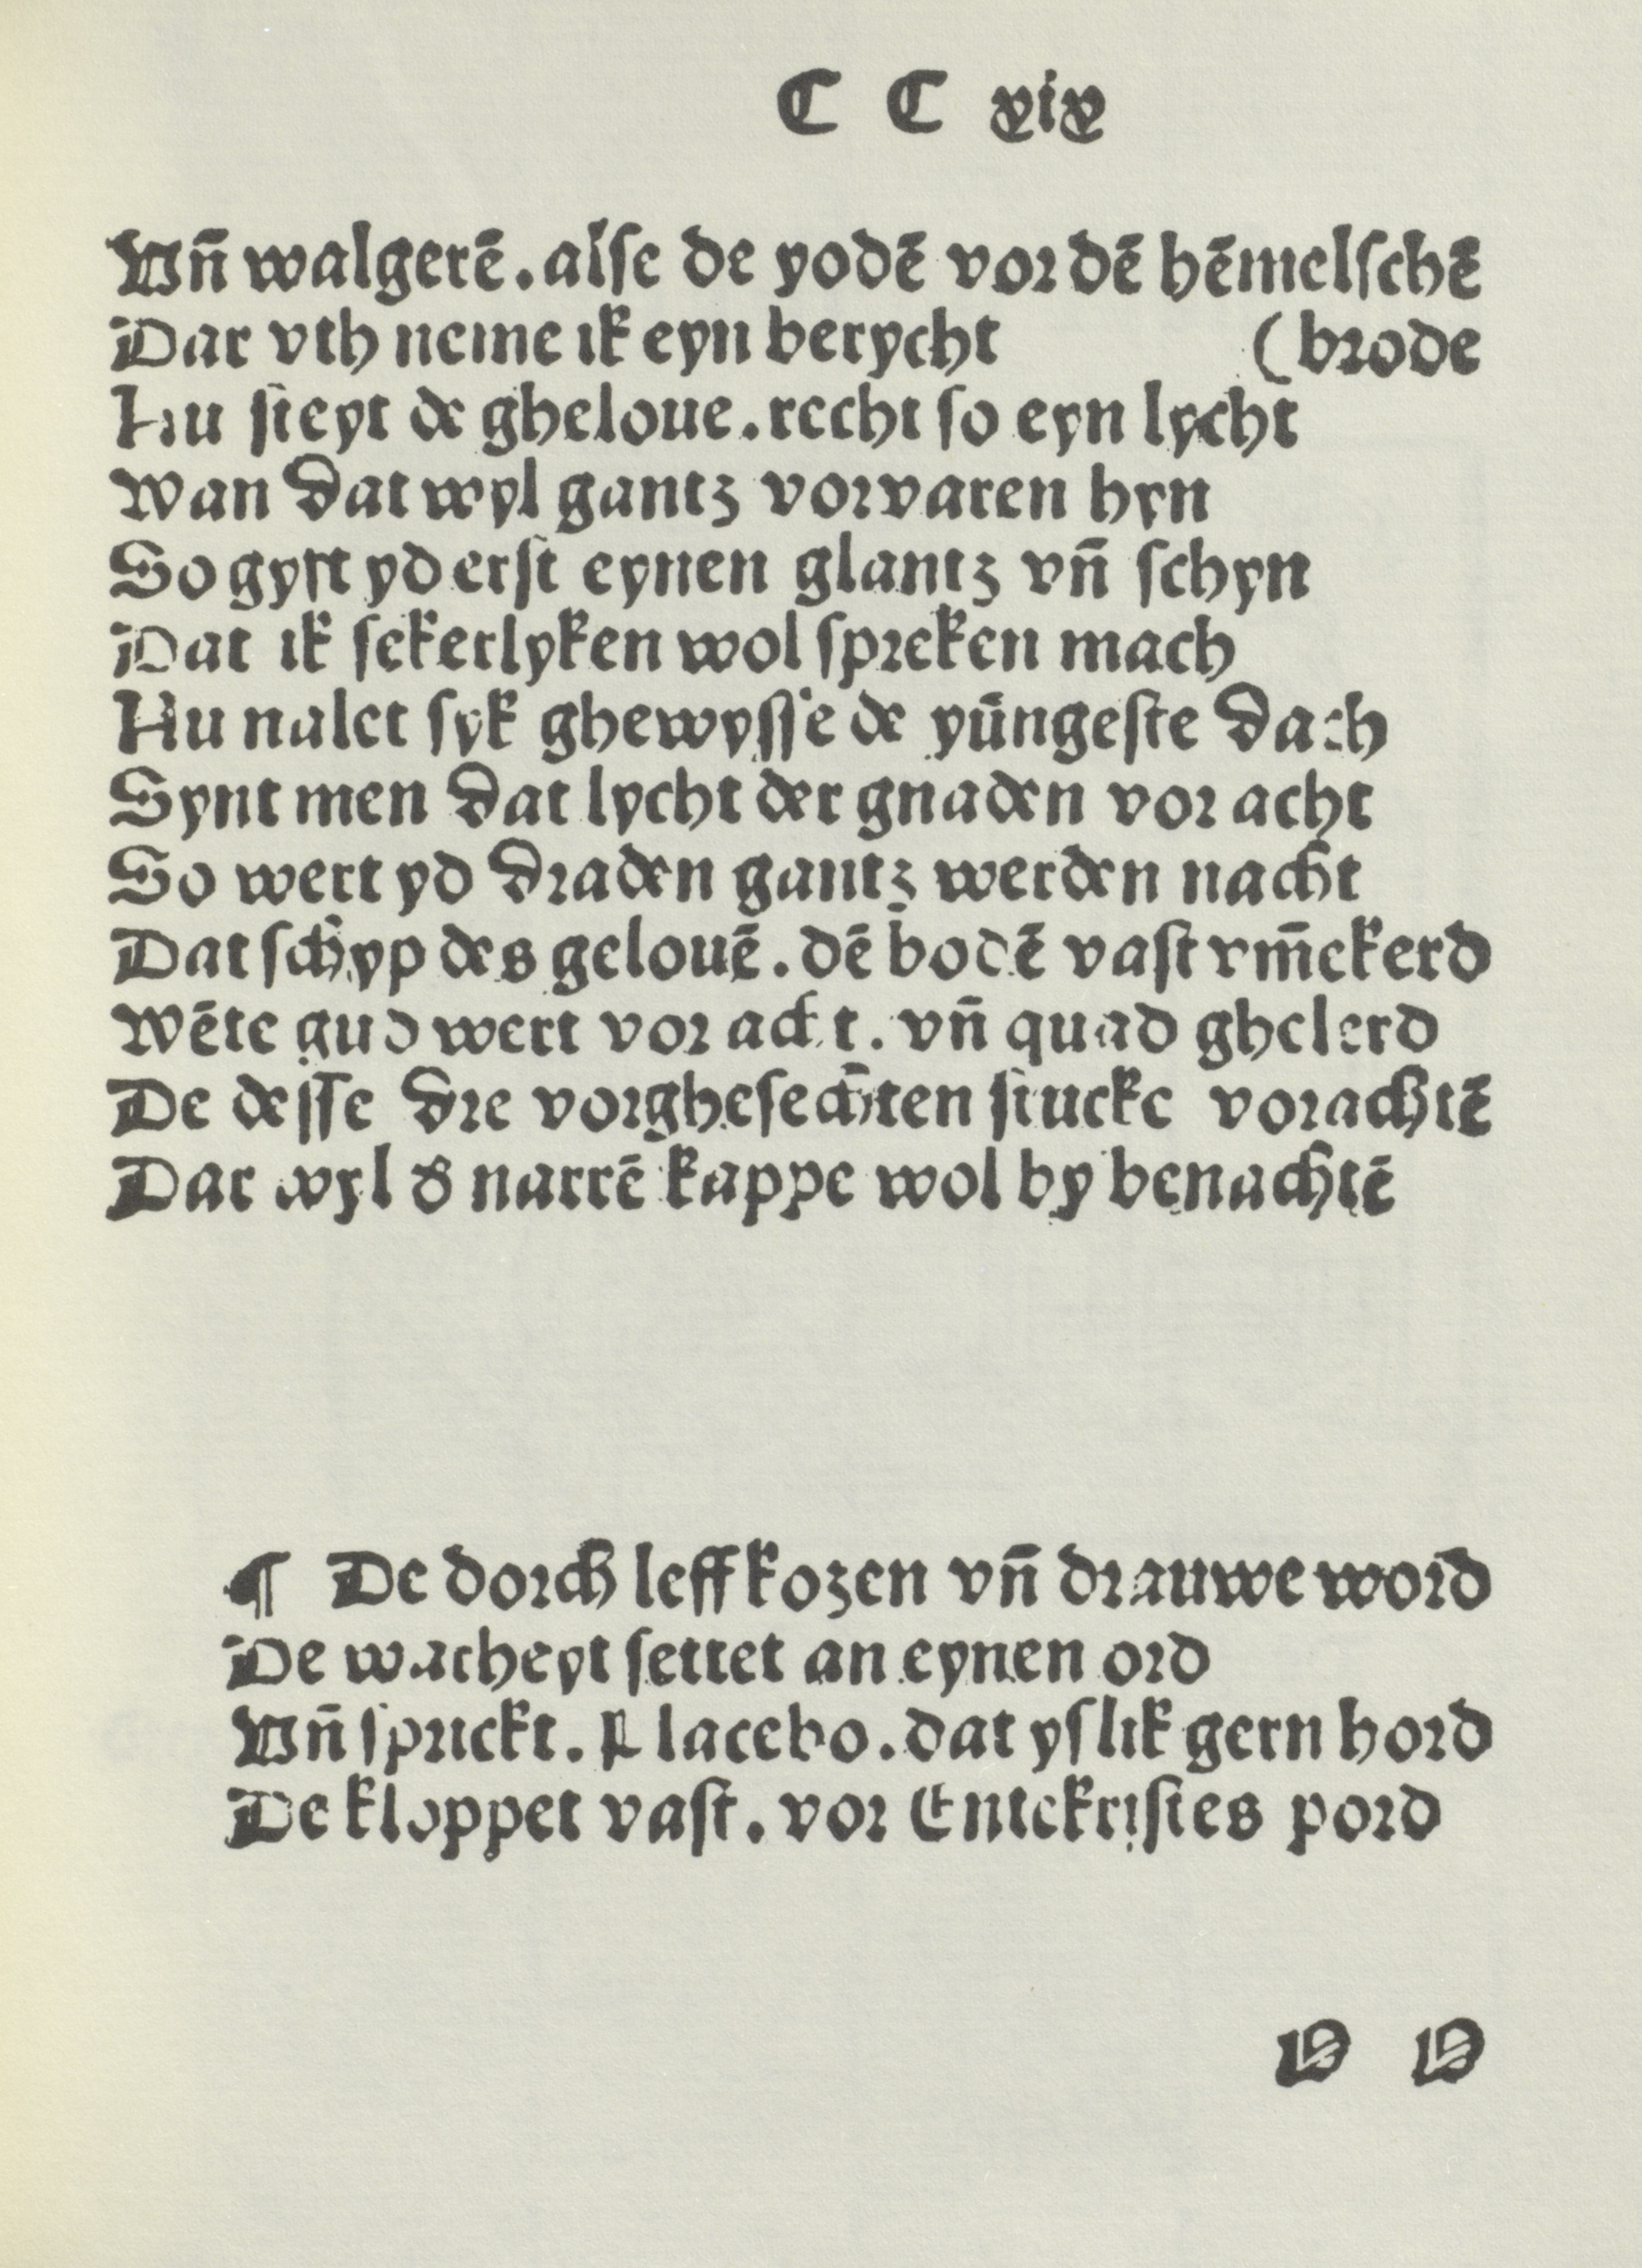 C C xix
Vñ walgerē. alse de yodē vor dē hēmelschē
Dar vth neme ik eyn berycht (brode
Nu steyt de gheloue. recht so eyn lycht
Wan dat wyl gantz vorvaren hyn
So gyft yd erst eynen glantz vñ schyn
Dat ik sekerlyken wol spreken mach
Nu nalet syk ghewysse de yüngeste dach
Synt men dat lycht der gnaden vor acht
So wert yd draden gantz werden nacht
Dat schyp des gelouē. dē bodē vast vm̄ekerd
Wēte gud wert vor acht. vñ quad ghelerd
De desse dre vorghesechten stucke vorachtē
Dar wyl d' narrē kappe wol by benachtē
¶ De dorch leffkozen vñ drauwe word
De wacheyt settet an eynen ord
Vñ sprickt. Placebo. dat yslik gern hord
De kloppet vast. vor Entekristes pord